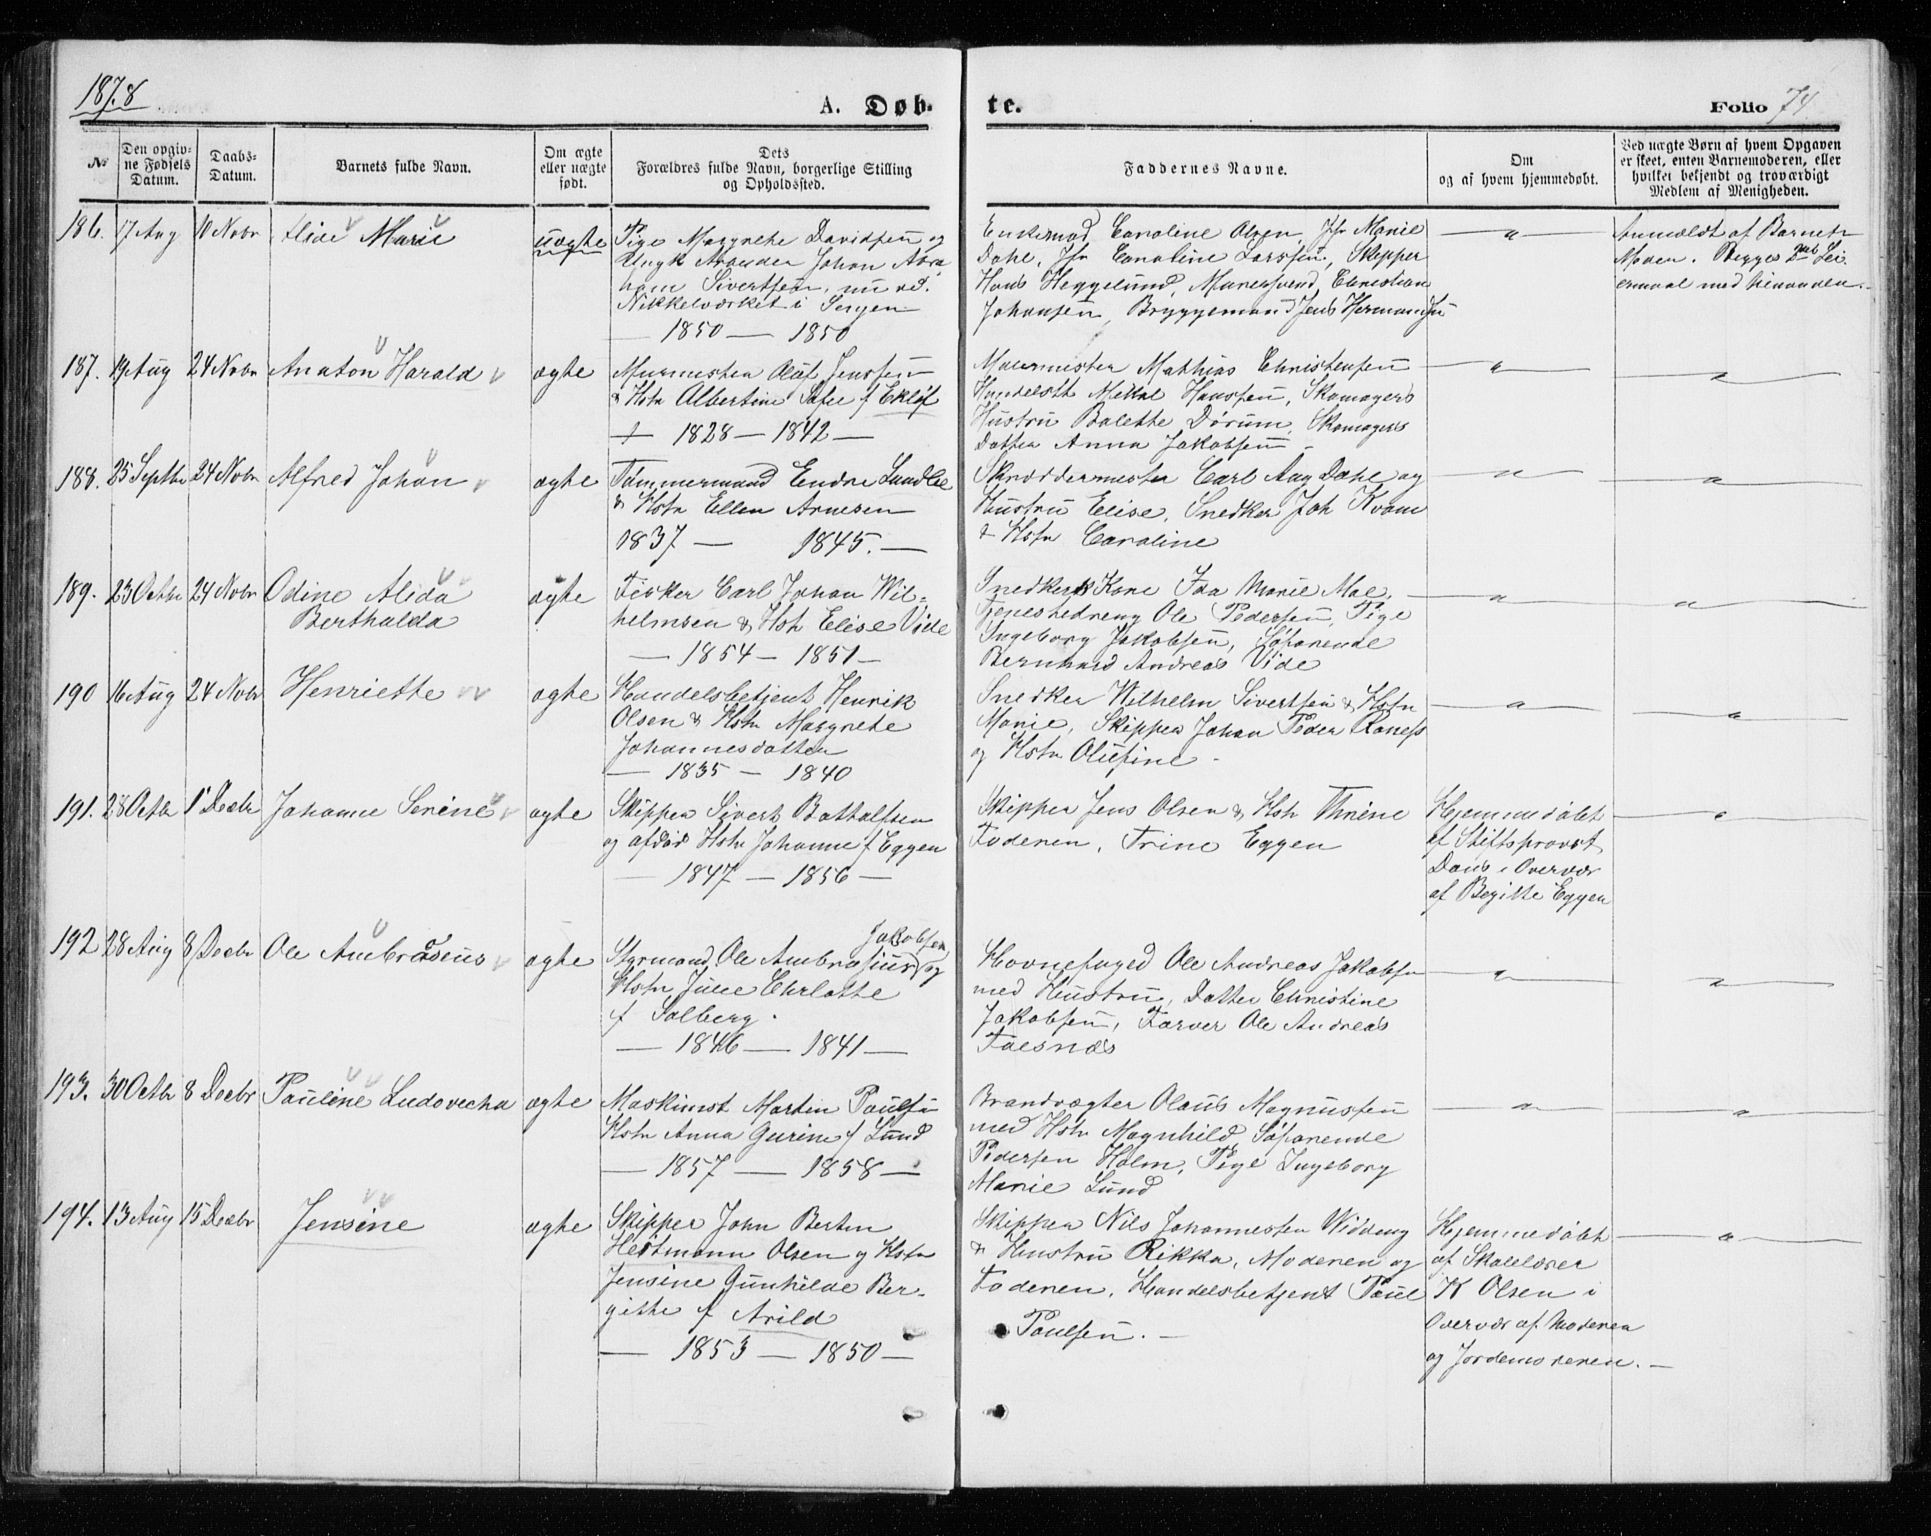 1878
A. Døb-
te.
Folio 74.
№
Den opgiv-
ne Fødsels
Datum.
Daabs-
Datum.
Barnets fulde Navn.
Om ægte
eller uægte
født.
Dets
Forældres fulde Navn, borgerlige Stilling
og Opholdssted.
Faddernes Navne.
Om
og af hvem hjemmedøbt.
Ved uægte Børn af hvem Opgaven
er skeet, enten Barnemoderen, eller
hvilket bekjendt og troværdigt
Medlem af Menigheden.
186. 17 Aug 10 Novbr Alida Marie uægte
Pige Margrethe Davidsen og
Ungk Johan Abra
ham Sivertsen, nu ved
Nikkelværket i Senjen
— 1850 — 1850
Enkemad Caroline Olsen, Jfr Marie
Dahl, Jfr Caroline Larssen, Skipper
Hans Heggelund, Murersvend Christian
Johansen, Bryggemand Jens Hermansen
Anmeldt af Barnets
Moder. Begges 2det Lei
ermaal med hinanden.
187. 19 Aug 24 Novbr Anaton Harald ægte
Murmester Oluf Jenssen
& Hstr Albertine Sofie f Ekløf
+ 1828 — 1842 —
Murmester Mathias Christensen
Handelsbtt Mikal Hanssen, Skomagers
Hustru Balette Dørum, Skomagers
Datter Anna Jakobsen —
188. 25 Septbr 24 Novbr Alfred Johan ægte
Tømmermand Endre Sundlie
& Hstr Ellen Arnesen
1837 — 1845. —
Skræddermester Carl Aug Dahl og
Hustru Elise, Snedker Joh Kvam
& Hstr Caroline
189. 23 Octbr 24 Novbr Odine Alida
Berthalda ægte
Fisker Carl Johan Wil-
helmsen & Hstr Elise Vide
— 1854 — 1851 —
Snedkers Kone Ida Marie Moe,
Tjenestedreng Ole Pedersen, Pige
Ingeborg Jakobsen, Søfarende
Bernhard Andreas Vide
190 16 Aug 24 Novbr Henriette ægte
Handelsbetjent Henrik
Olsen & Hstr Margrethe
Johannesdatter
— 1835 — 1840
Snedker Wilhelm Sivertsen & Hstr
Marie, Skipper Johan Peder Raness
og Hstr Olufine —
191. 28 Octbr 1 Decbr Johanne Serine ægte
Skipper Sivert Bottolfsen
og afdød Hstr Johanne f Eggen
— 1847 — 1856 —
Skipper Jens Olsen & Hstr Thrine
Faderen, Trine Eggen
Hjemmedøbt
af Stiftsprovst
Daus i Overvær
af Begitte Eggen
192 28 Aug 8 Decbr Ole Ambrosius ægte
Jakobsen
Styrmand Ole Ambrosius og
Hstr Julie Chrlotte
f Solberg.
— 1846 — 1841 —
Havnefoged Ole Andreas Jakobsen
med Hustru, Datter Christine
Jakobsen, Farver Ole Andreas
Falsnæs
193. 30 Octbr 8 Decbr Pauline Ludovecha ægte
Maskinist Martin Paulsen
Hstr Anna Gurine f Lund
— 1857 — 1858 —
Brandvægter Olaus Magnussen
med Hstr Magnhild, Søfarende
Pedersen Holm, Pige Ingeborg
Marie Lund
194. 13 Aug 15 Decbr Jensine ægte
Skipper John Berten
Hertmann Olsen og Hstr
Jensine Gunhilde Ber-
gitte f Arild
— 1853 — 1850 —
Skipper Nils Johannesen Widding
& Hustru Rikka, Moderen og
Faderen, Handelsbetjent Paul
Paulsen. —
Hjemmedøbt
af Skolelærer
K Olsen i
Overvær af Moderen
og Jordemoderen. —